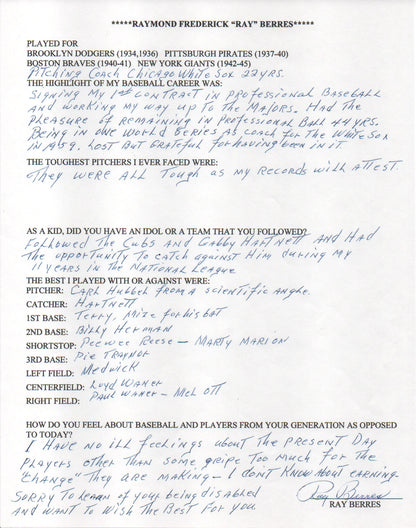 *****RAYMOND FREDERICK "RAY" BERRES*****
PLAYED FOR
BROOKLYN DODGERS (1934,1936) PITTSBURGH PIRATES (1937-40)
BOSTON BRAVES (1940-41) NEW YORK GIANTS (1942-45)
Pitching Coach Chicago White Sox 22 yrs.
THE HIGHLIGHT OF MY BASEBALL CAREER WAS:
Signing My 1st contract in Professional Baseball
and working my way up to the Majors. Had the
pleasure of remaining in Professional Ball 44 yrs.
Being in one World Series as coach for the White Sox
in 1959. Lost But Grateful for having been in it
THE TOUGHEST PITCHERS I EVER FACED WERE:
They were all tough as my records will attest.
AS A KID, DID YOU HAVE AN IDOL OR A TEAM THAT YOU FOLLOWED?
Followed the Cubs and Gabby Hartnett and Had
the opportunity to catch against Him during my
11 years in the National League
THE BEST I PLAYED WITH OR AGAINST WERE:
PITCHER: Carl Hubbell from a scientific angle
CATCHER: Hartnett
1ST BASE: Terry, Mize for his bat
2ND BASE: Billy Herman
SHORTSTOP: Peewee Reese — Marty Marion
3RD BASE: Pie Traynor
LEFT FIELD: Medwick
CENTERFIELD: Loyd Waner
RIGHT FIELD: Paul Waner - Mel Ott
HOW DO YOU FEEL ABOUT BASEBALL AND PLAYERS FROM YOUR GENERATION AS OPPOSED
TO TODAY?
I Have no ill feelings about the Present Day
Players other than some gripe too much for the
"change" They are making — I don't know about earning.
Sorry to learn of your being disabled
and want to wish the Best For you
Ray Berres
RAY BERRES